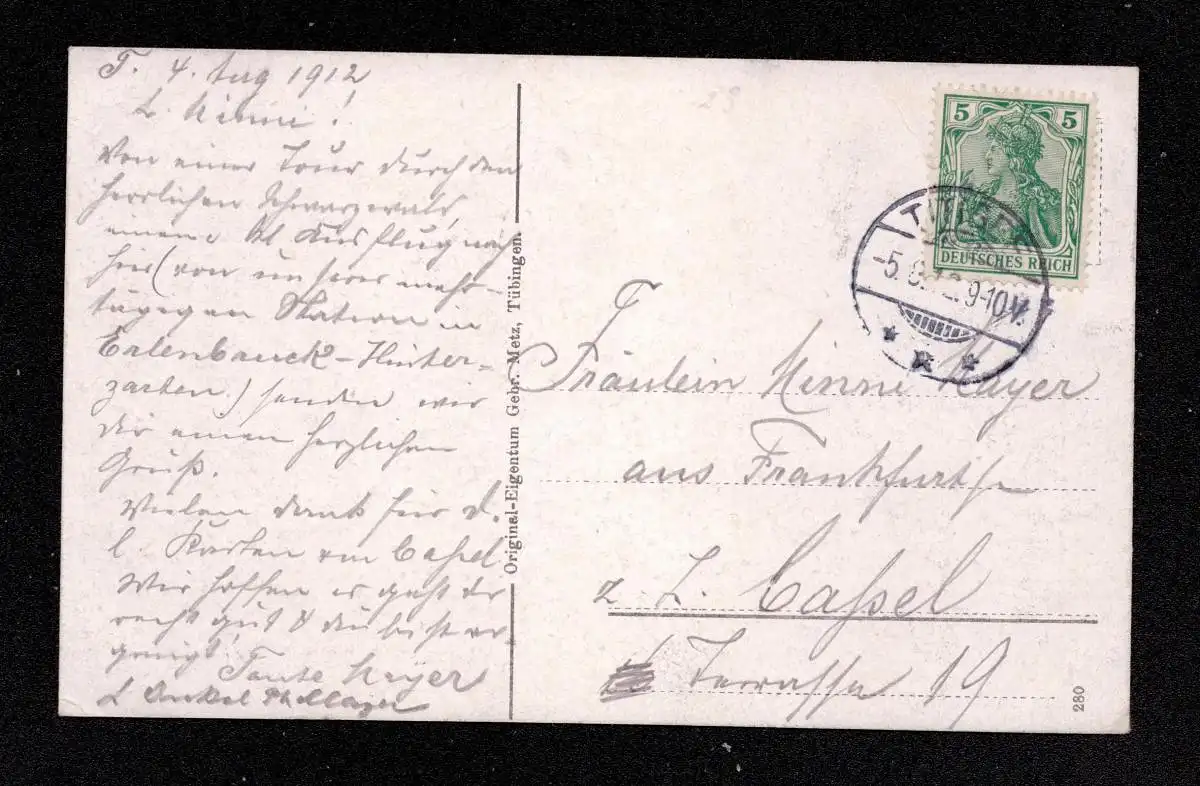 T. 4. Aug 1912
L. Minni!
Von einer Tour durch den
herrlichen Schwarzwald,
einem Ausflug nach
hier (von unserer mehr-
tägigen Station in
Erlenbruck-Hinter-
zarten) senden wir
Dir einen herzlichen
Gruß.
Vielen Dank für d.
l. Karten von Cassel.
Wir hoffen es geht Dir
recht gut & du bist
Tante Mayer
& Onkel
Original-Eigentum Gebr. Metz, Tübingen.
5 5
DEUTSCHES REICH
-5. 12. 9-10V.
Fräulein Minni Mayer
aus Frankfurt
z. Z. Caßel
Terrasse 19
280